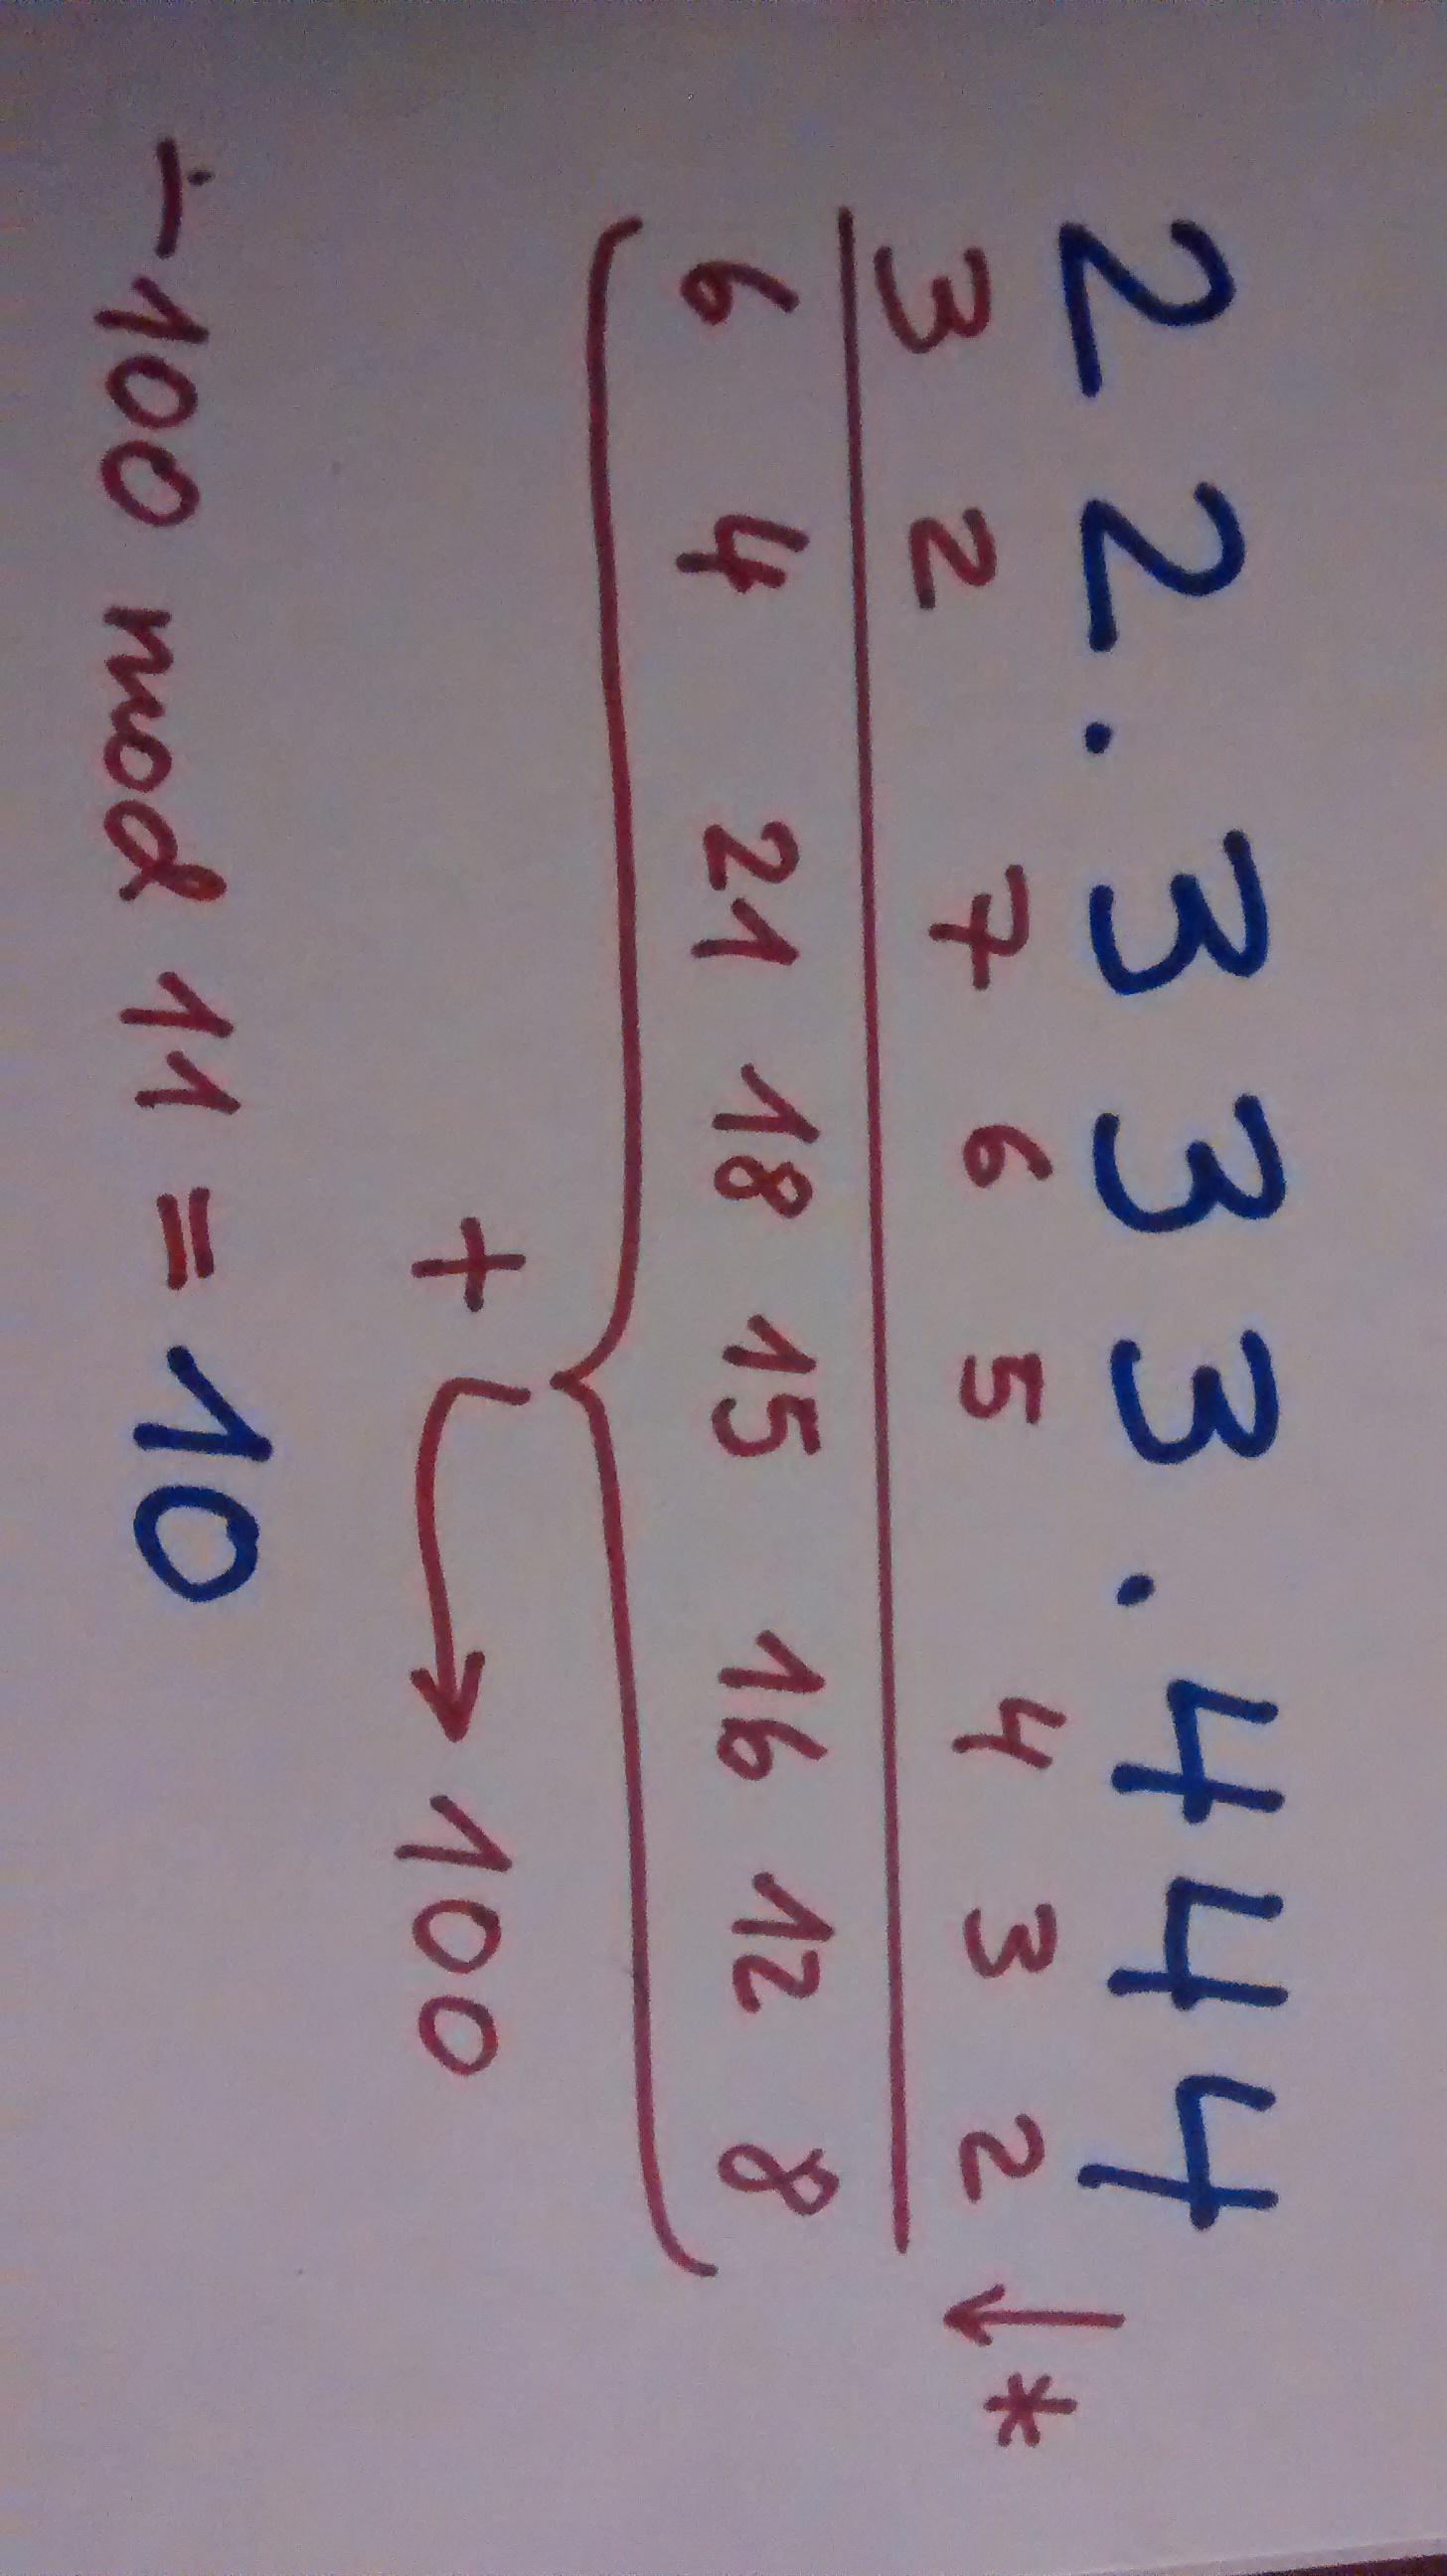 22.333.444
3 2 7 6 5 4 3 2 ↓*
6 4 21 18 15 16 12 8
+ → 100
-100 mod 11 = 10